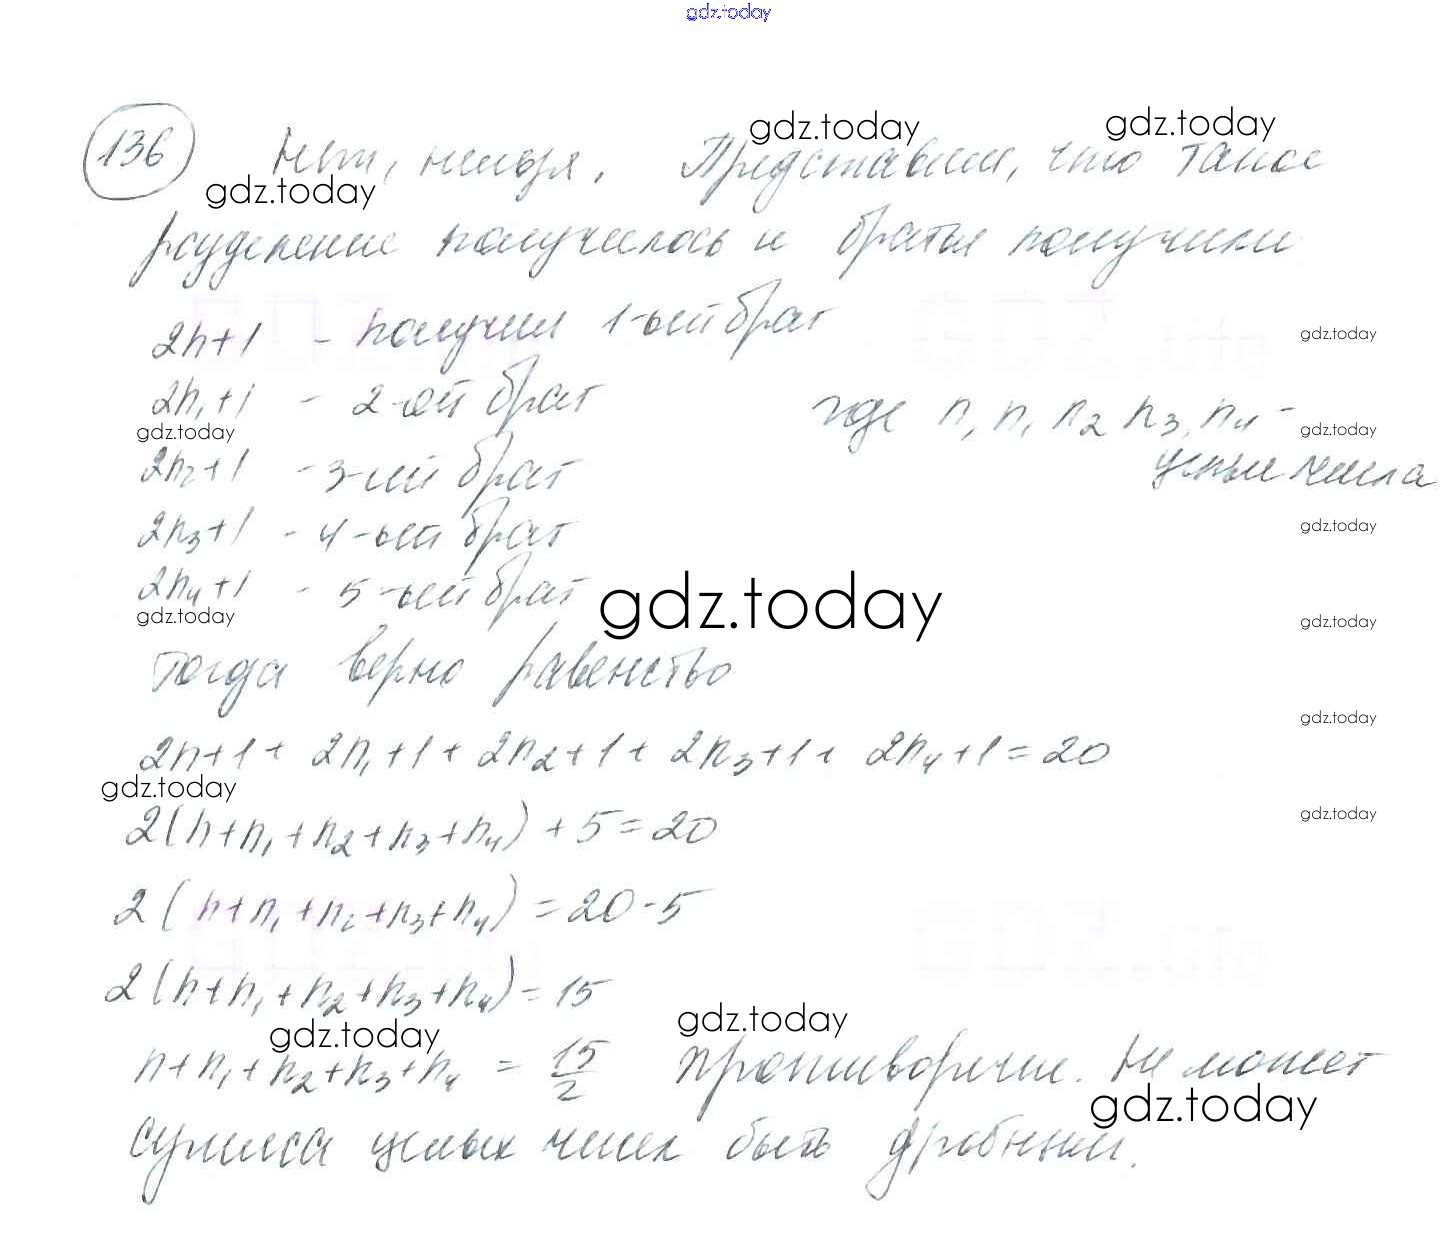 gdz.today
136 Нет, нельзя. Представим, что такое
gdz.today gdz.today gdz.today
получилось и братья получили
2n+1 - получил 1-ый брат
gdz.today
2n₁+1 - 2-ой брат где n, n₁ n₂ n₃, n₄ -
gdz.today gdz.today
2n₂+1 - 3-ий брат целые числа
2n₃+1 - 4-ый брат
gdz.today
2n₄+1 - 5-ый брат
gdz.today gdz.today gdz.today
тогда верно равенство
gdz.today
2n+1+ 2n₁+1+ 2n₂+1+ 2n₃+1+ 2n₄+1=20
gdz.today
2(n+n₁+n₂+n₃+n₄)+5=20
gdz.today
2(n+n₁+n₂+n₃+n₄)=20-5
2(n+n₁+n₂+n₃+n₄)=15
gdz.today gdz.today
n+n₁+n₂+n₃+n₄ = 15/2 противоречие. Не может
gdz.today
сумма целых чисел быть дробным.